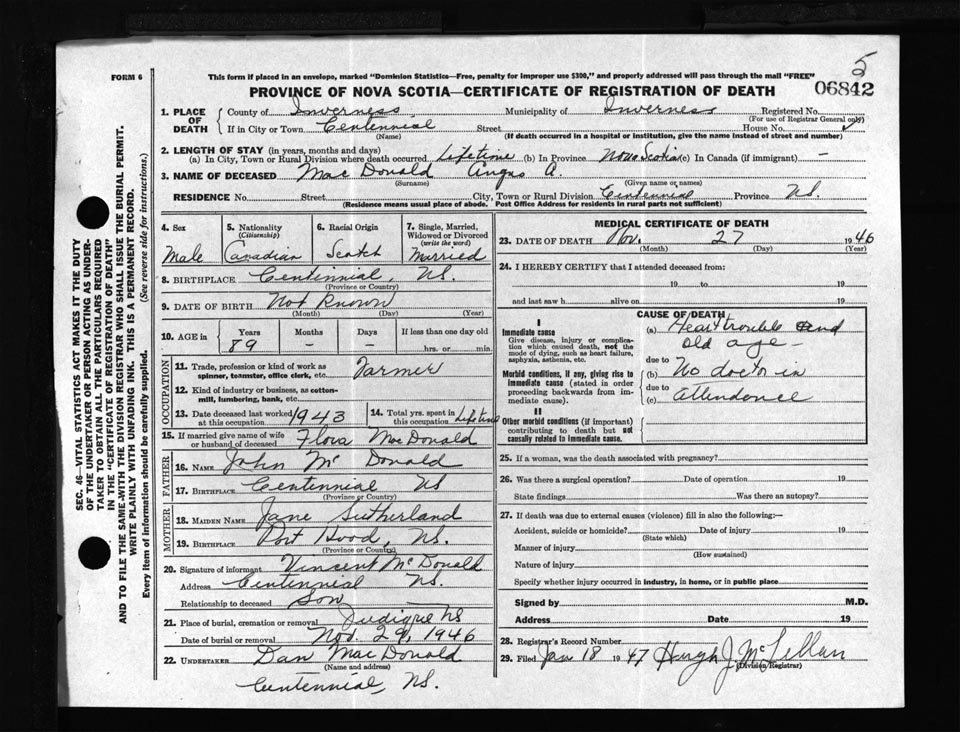 5
FORM 6
This form if placed in an envelope, marked "Dominion Statistics—Free, penalty for improper use $300," and properly addressed will pass through the mail "FREE"
PROVINCE OF NOVA SCOTIA—CERTIFICATE OF REGISTRATION OF DEATH
06842
1. PLACE OF DEATH
County of Inverness Municipality of Inverness Registered No.
(For use of Registrar General only)
If in City or Town Centennial Street House No.
(Name) (If death occurred in a hospital or institution, give the name instead of street and number)
2. LENGTH OF STAY (in years, months and days)
(a) In City, Town or Rural Division where death occurred Lifetime (b) In Province Nova Scotia (c) In Canada (if immigrant) —
3. NAME OF DECEASED Mac Donald Angus A.
(Surname) (Given name or names)
RESIDENCE No. Street City, Town or Rural Division Centennial Province N.S.
(Residence means usual place of abode. Post Office Address for residents in rural parts not sufficient)
4. Sex
Male
5. Nationality
(Citizenship)
Canadian
6. Racial Origin
Scotch
7. Single, Married, Widowed or Divorced
(write the word)
Married
8. BIRTHPLACE Centennial, NS.
(Province or Country)
9. DATE OF BIRTH Not Known
(Month) (Day) (Year)
10. AGE in Years Months Days If less than one day old
89 — — hrs. or min.
OCCUPATION
11. Trade, profession or kind of work as Farmer
spinner, teamster, office clerk, etc.
12. Kind of industry or business, as cotton-
mill, lumbering, bank, etc.
13. Date deceased last worked at this occupation 1943
14. Total yrs. spent in this occupation Lifetime
15. If married give name of wife or husband of deceased Flora MacDonald
FATHER
16. NAME John McDonald
17. BIRTHPLACE Centennial NS
(Province or Country)
MOTHER
18. MAIDEN NAME Jane Sutherland
19. BIRTHPLACE Port Hood, NS.
(Province or Country)
20. Signature of informant Vincent McDonald
Address Centennial NS.
Relationship to deceased Son
21. Place of burial, cremation or removal Judique NS
Date of burial or removal Nov. 29, 1946
22. UNDERTAKER Dan MacDonald
(Name and address)
Centennial, NS.
MEDICAL CERTIFICATE OF DEATH
23. DATE OF DEATH Nov. 27 1946
(Month) (Day) (Year)
24. I HEREBY CERTIFY that I attended deceased from:
19 to 19
and last saw h alive on 19
CAUSE OF DEATH
I
Immediate cause
Give disease, injury or complication which caused death, not the mode of dying, such as heart failure, asphyxia, asthenia, etc.
(a) Heart trouble and
old age —
due to
Morbid conditions, if any, giving rise to immediate cause (stated in order proceeding backwards from immediate cause).
(b) No doctor in
due to
(c) attendence
II
Other morbid conditions (if important) contributing to death but not causally related to immediate cause.
25. If a woman, was the death associated with pregnancy?
26. Was there a surgical operation? Date of operation 19
State findings Was there an autopsy?
27. If death was due to external causes (violence) fill in also the following:—
Accident, suicide or homicide? Date of injury 19
(State which)
Manner of injury
(How sustained)
Nature of injury
Specify whether injury occurred in industry, in home, or in public place
Signed by M.D.
Address Date 19
28. Registrar's Record Number
29. Filed Jan 18 1947 Hugh J McLellan
(Division Registrar)
SEC. 46—VITAL STATISTICS ACT MAKES IT THE DUTY
OF THE UNDERTAKER OR PERSON ACTING AS UNDER-
TAKER TO OBTAIN ALL THE PARTICULARS REQUIRED
IN THE "CERTIFICATE OF REGISTRATION OF DEATH"
AND TO FILE THE SAME WITH THE DIVISION REGISTRAR WHO SHALL ISSUE THE BURIAL PERMIT.
WRITE PLAINLY WITH UNFADING INK. THIS IS A PERMANENT RECORD.
Every item of information should be carefully supplied. (See reverse side for instructions.)